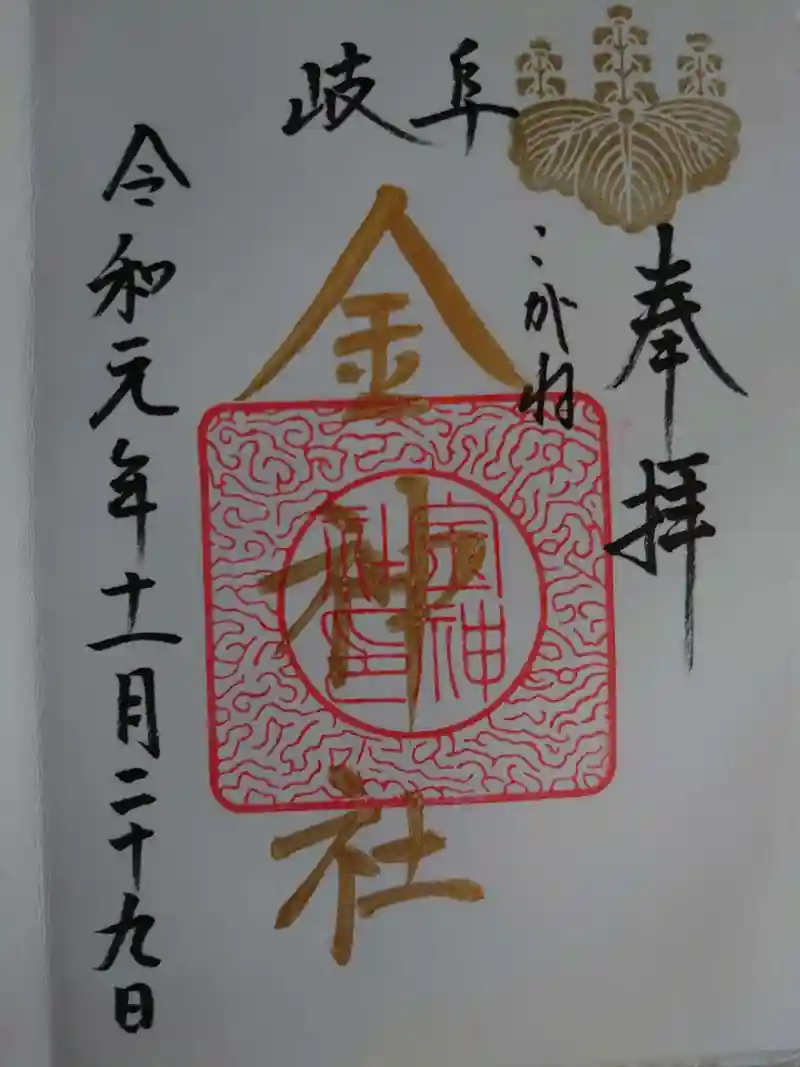 奉拝
岐阜
こがね
金神社
金神
社印
令和元年十一月二十九日